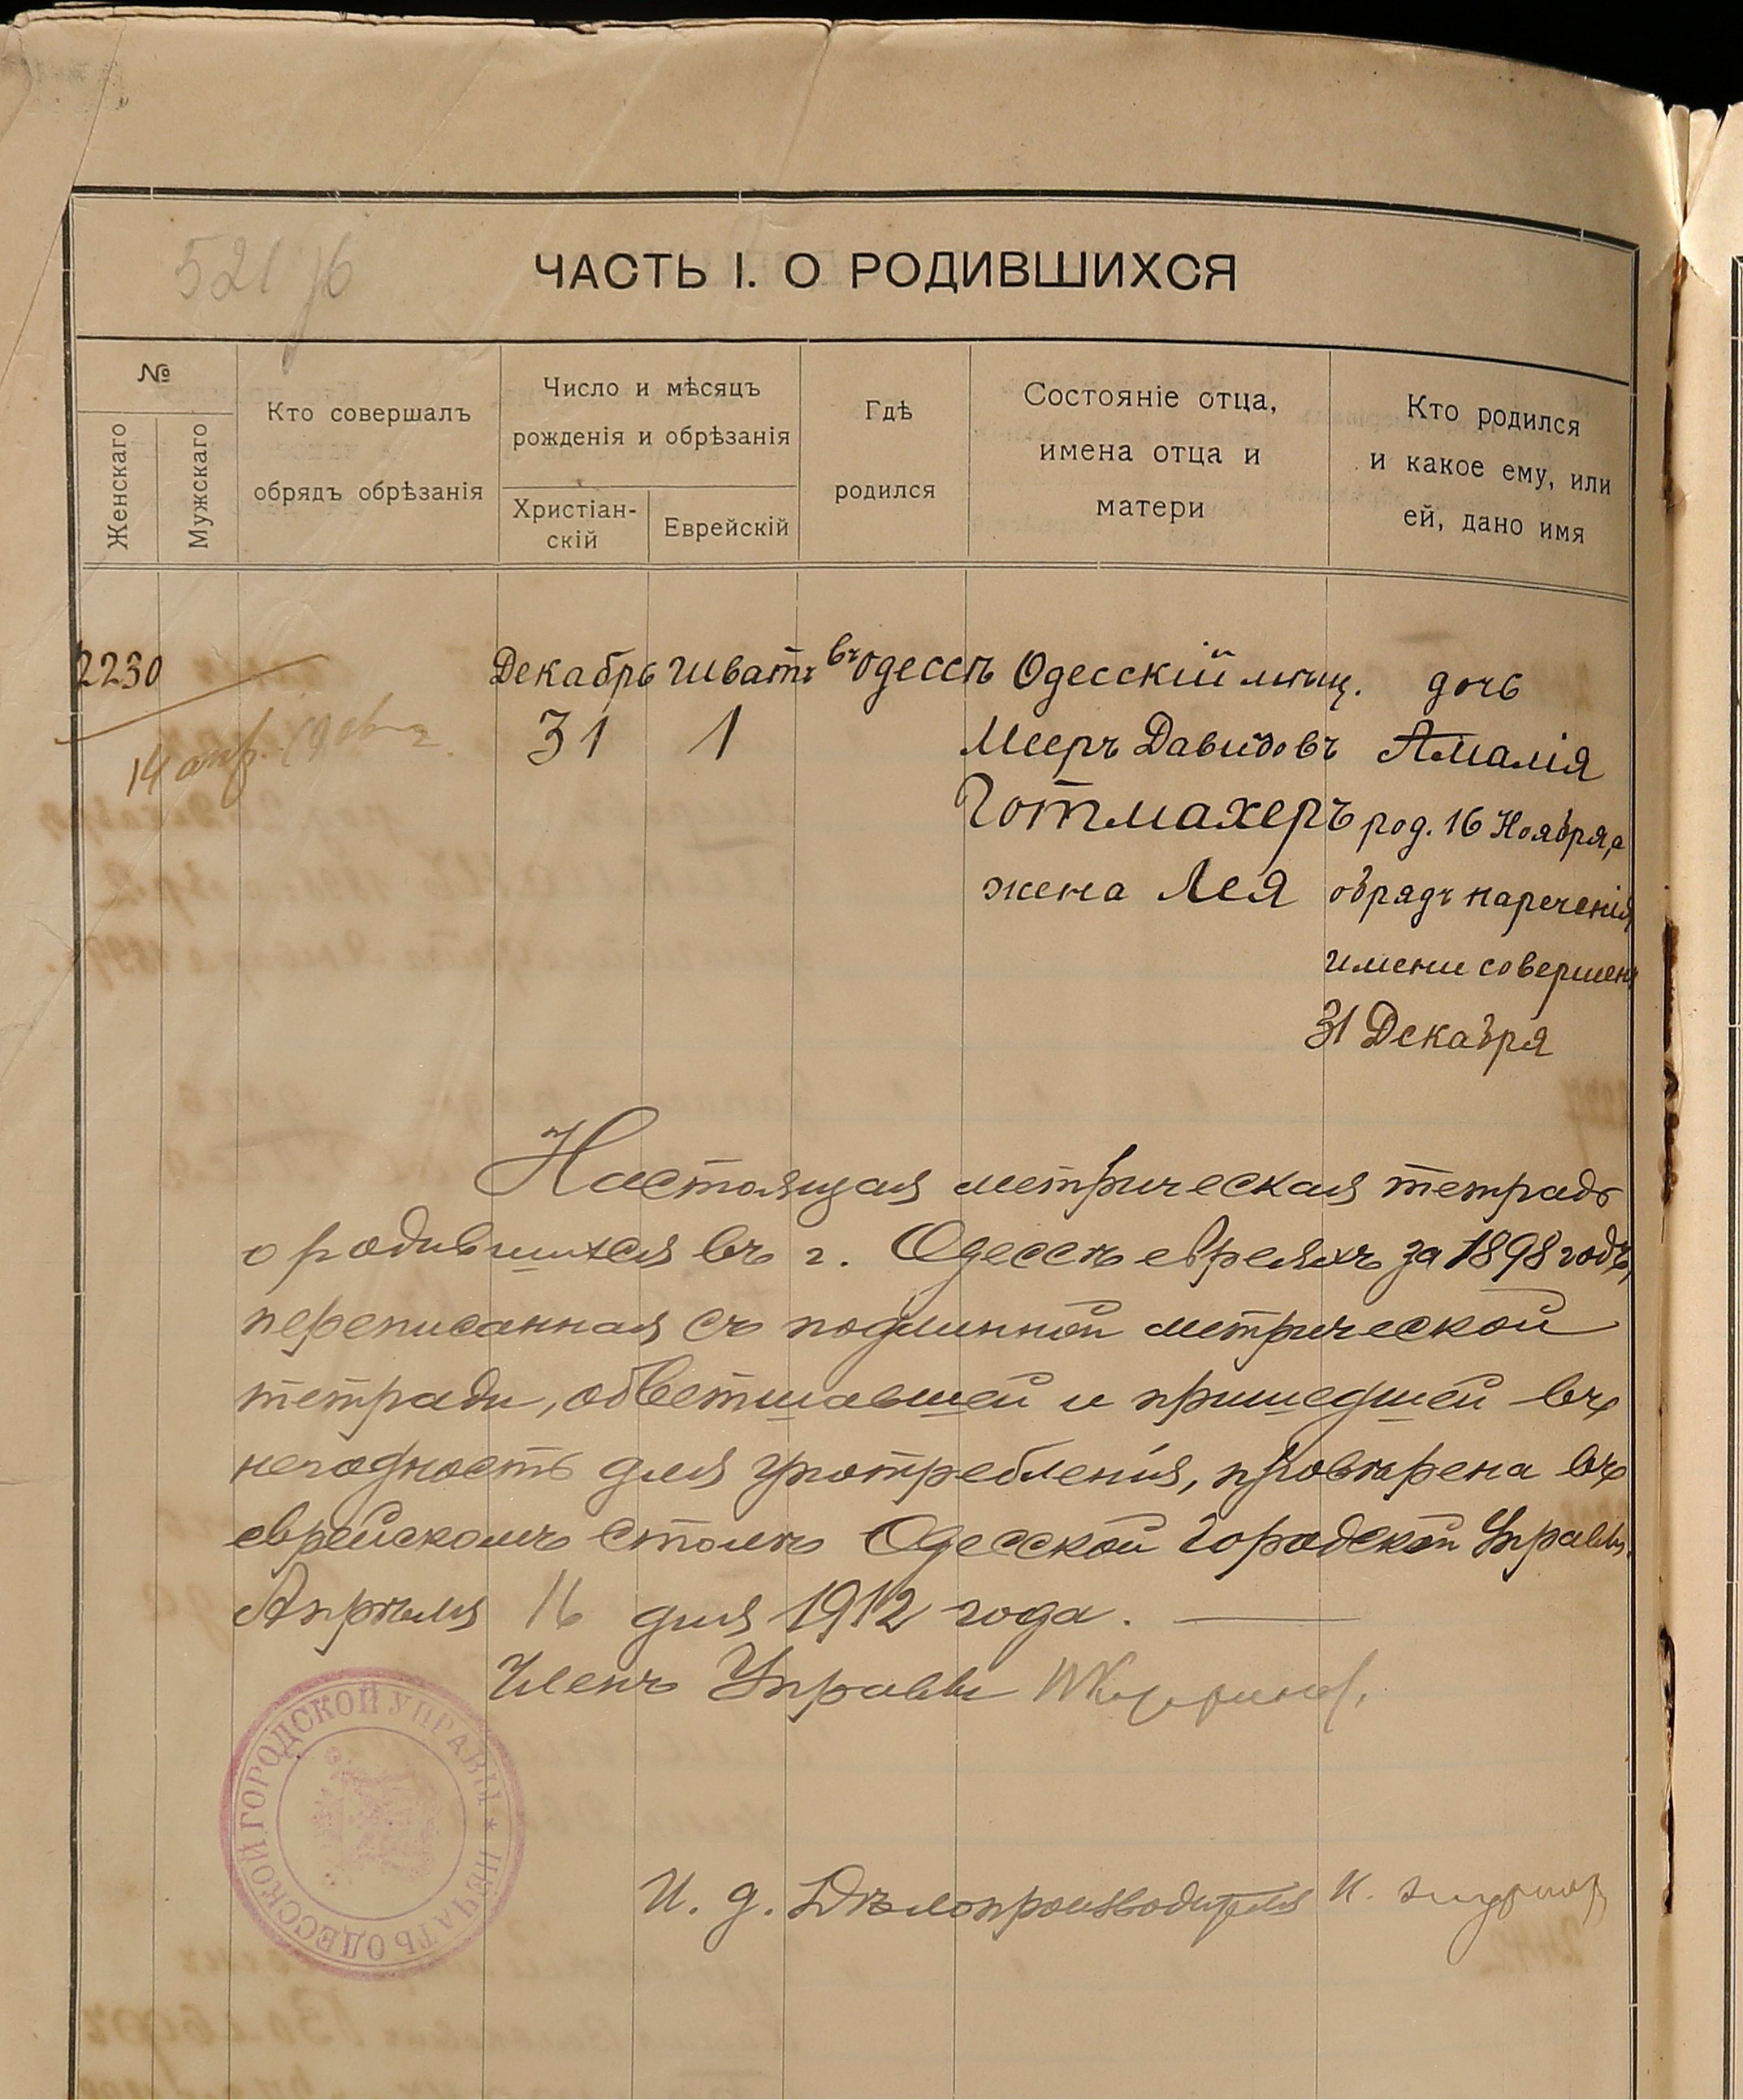 521
ЧАСТЬ I. О РОДИВШИХСЯ
№
Женскаго
Мужскаго
Кто совершалъ
обрядъ обрѣзанія
Число и мѣсяцъ
рожденія и обрѣзанія
Христіан-
скій
Еврейскій
Гдѣ
родился
Состояніе отца,
имена отца и
матери
Кто родился
и какое ему, или
ей, дано имя
2230
14 апр.
Декабрь
31
Шватъ
1
въ Одессѣ
Одесскій мѣщ.
Мееръ Давидовъ
Готмахеръ
жена Лея
дочь
Амалія
род. 16 Ноября, а
обрядъ нареченія
имени совершенъ
31 Декабря
Настоящая метрическая тетрадь
о родившихся въ г. Одессѣ евреяхъ за 1898 годъ,
переписанная съ подлинной метрической
тетради, обветшавшей и пришедшей въ
негодность для употребленія, провѣрена въ
еврейскомъ столѣ Одесской Городской Управы.
Апрѣля 16 дня 1912 года.
Членъ Управы
И. д. Дѣлопроизводителя
ПЕЧАТЬ ОДЕССКОЙ ГОРОДСКОЙ УПРАВЫ *